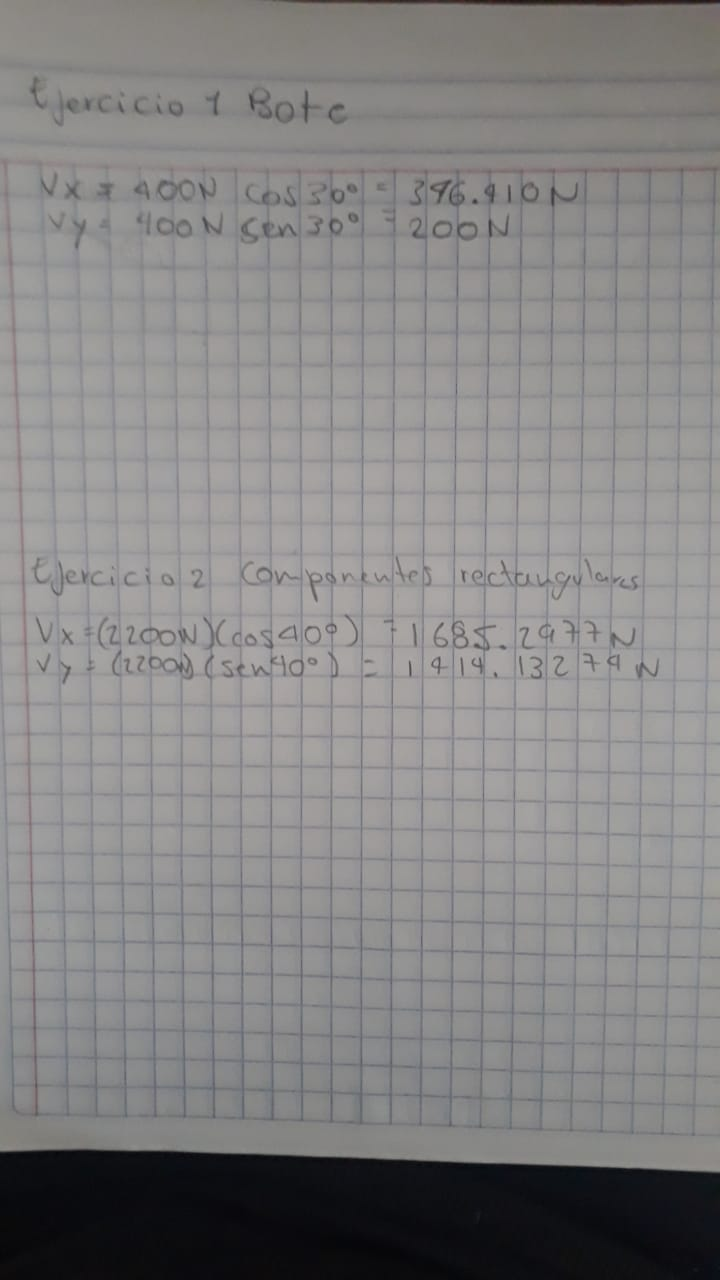 Ejercicio 1 Bote
Vx = 400N cos 30° = 346.410N
Vy = 400N sen 30° = 200N
Ejercicio 2 componentes rectangulares
Vx=(2200N)(cos40°) = 1685.2977N
Vy = (2200N)(sen40°) = 1414.13274N